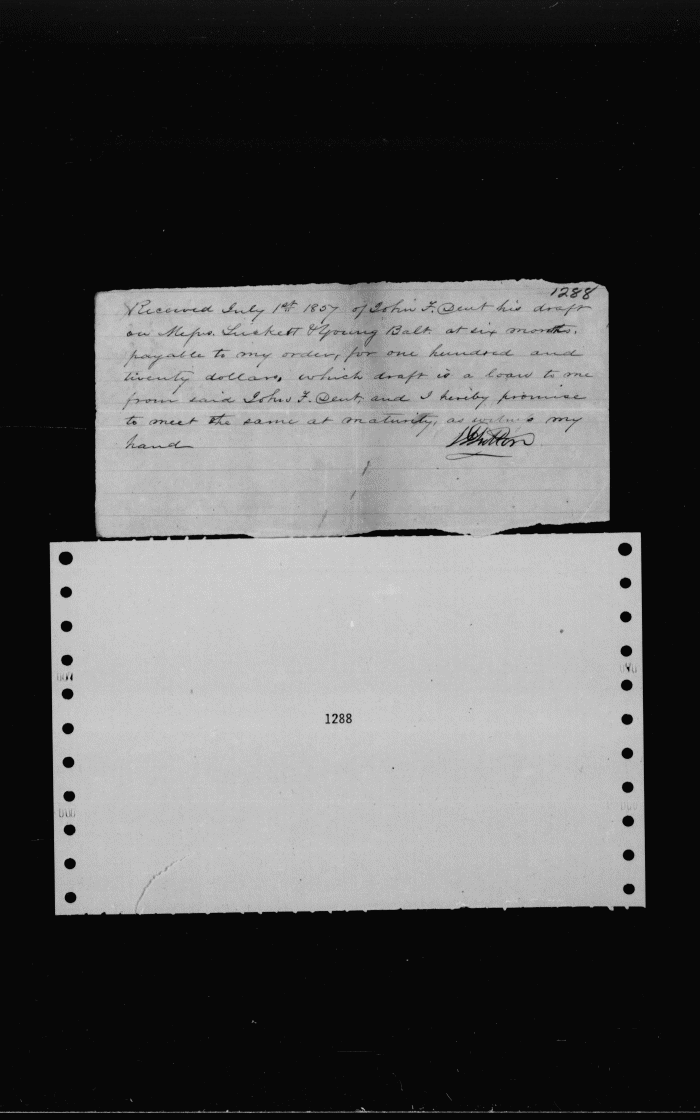 1288
Received July 1st 1857 of John F. Dent his draft
on Messrs. Luckett & Young Balt. at six months,
payable to my order, for one hundred and
twenty dollars, which draft is a loan to me
from said John F. Dent and I hereby promise
to meet the same at maturity, as witness my
hand
1288